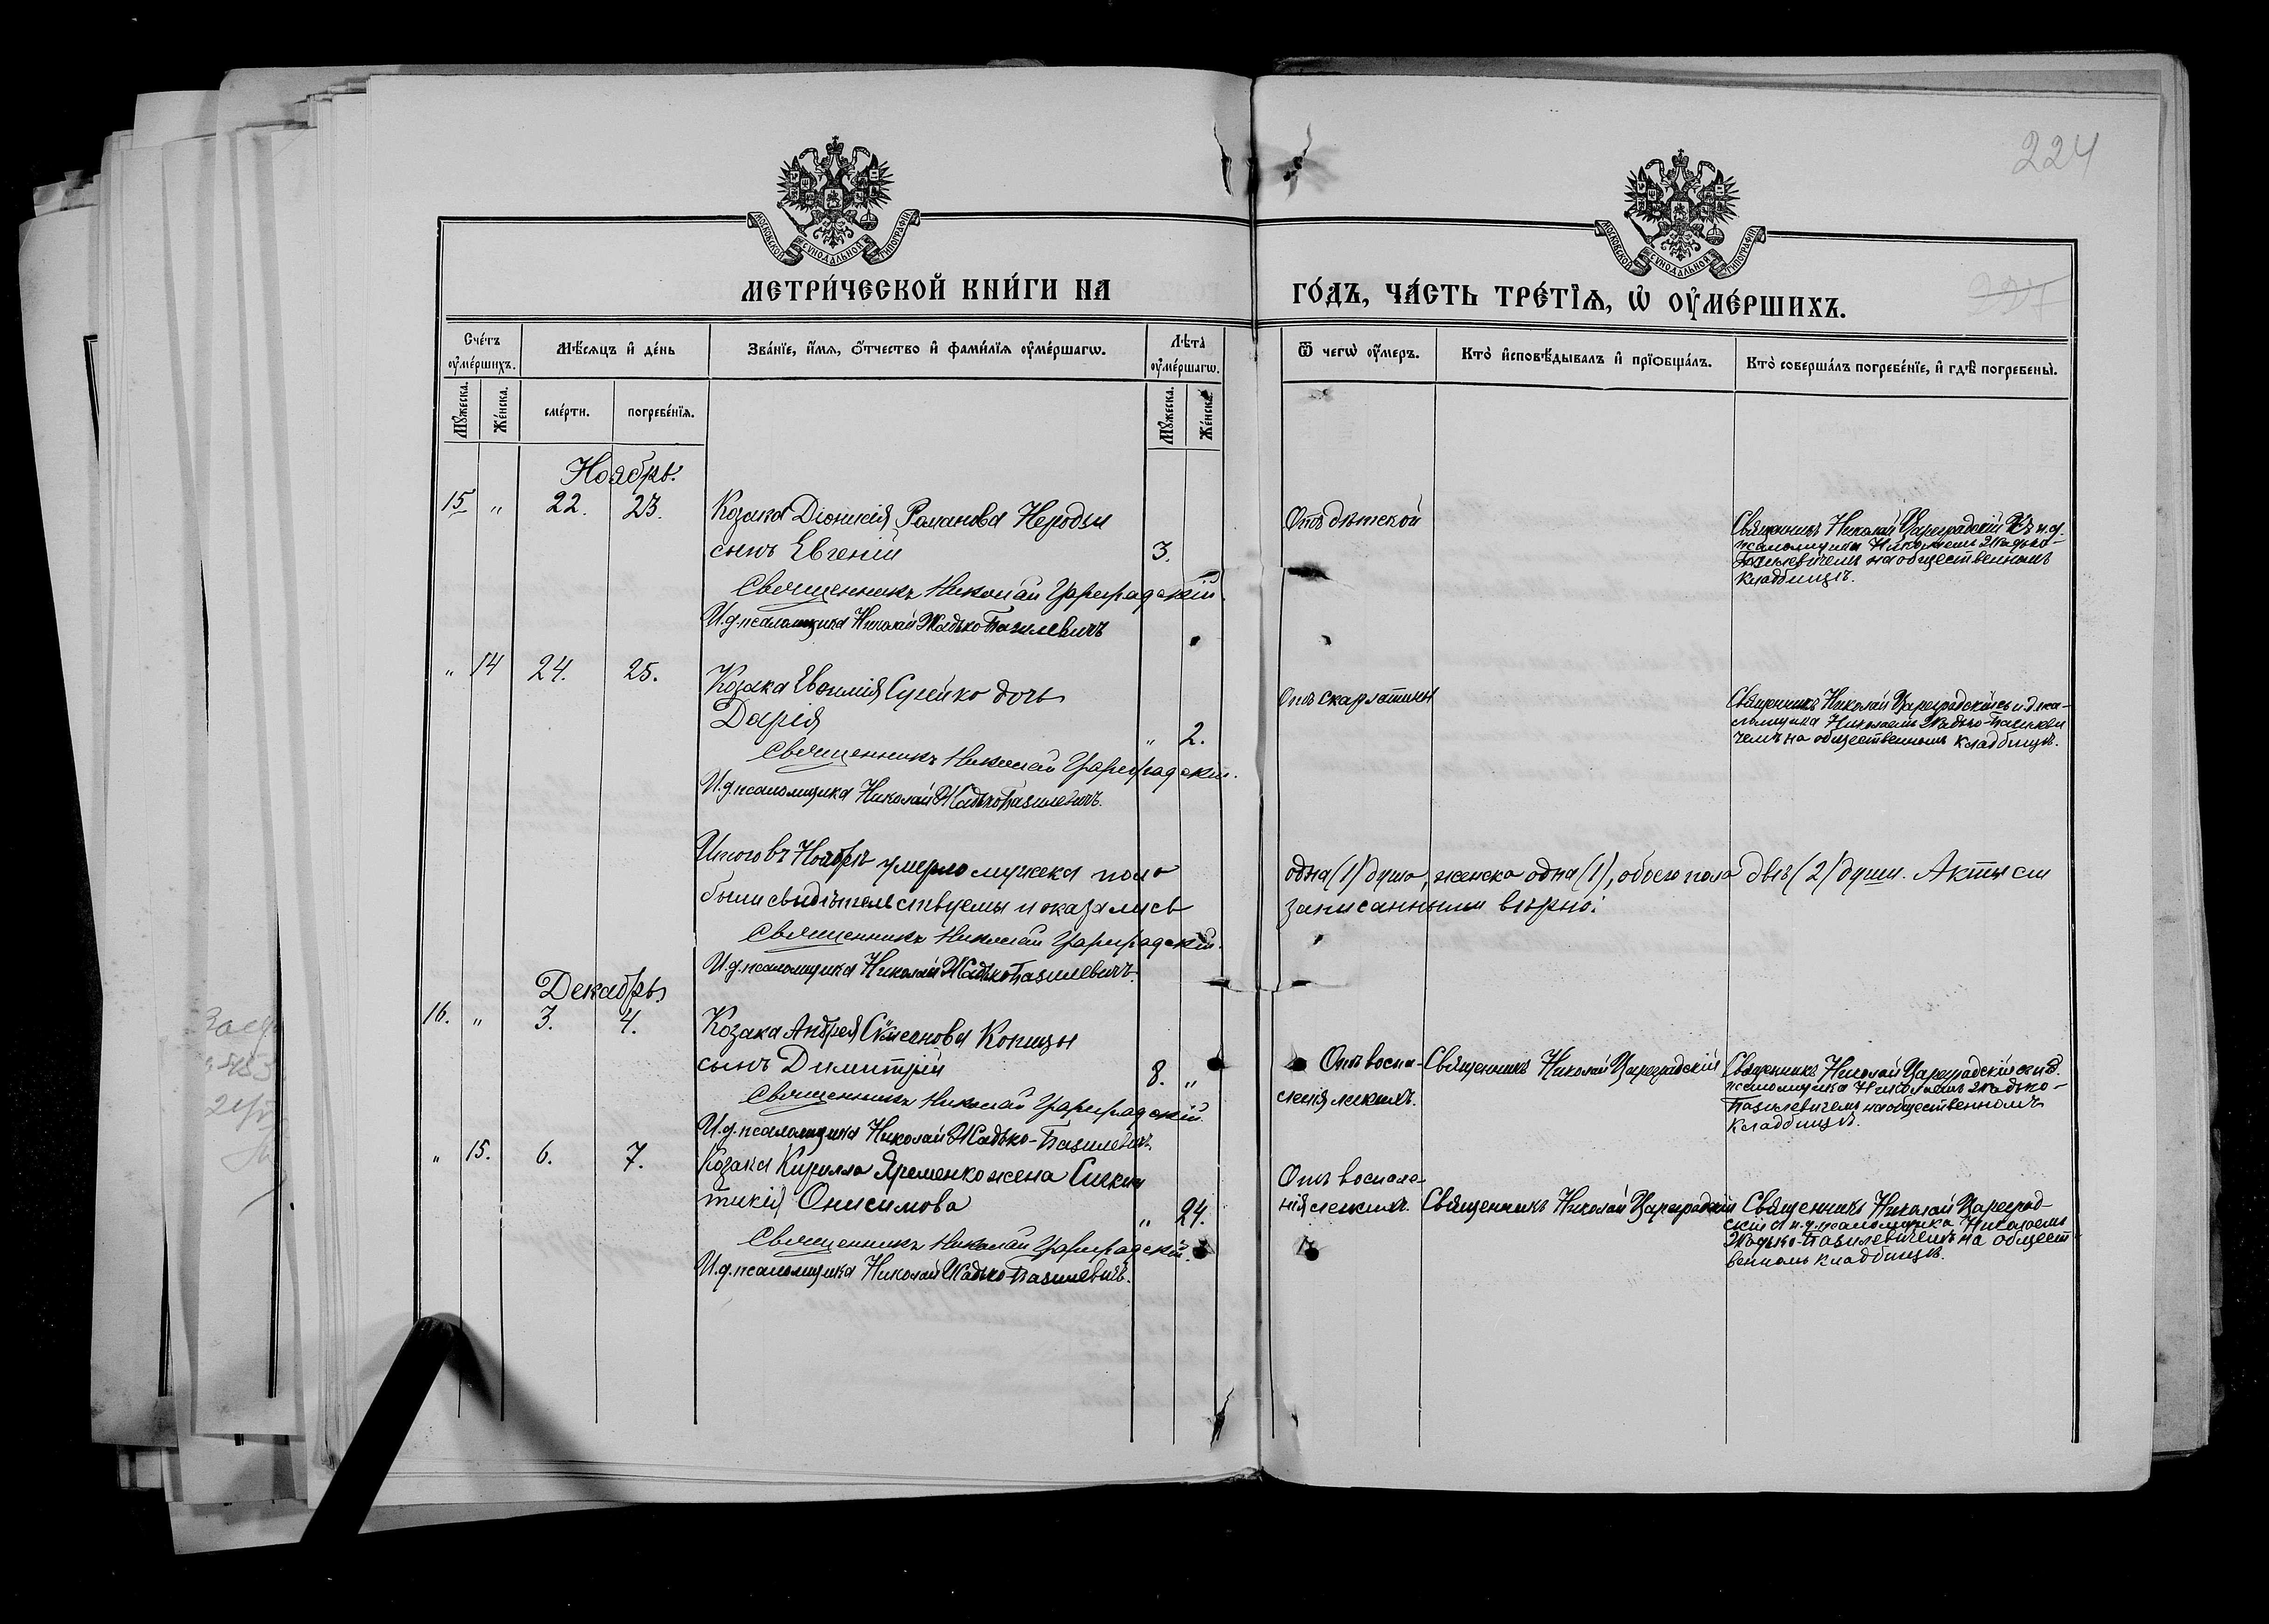 224
МОСКОВСКОЙ СѴНОДАЛЬНОЙ ТИПОГРАФІИ
МОСКОВСКОЙ СѴНОДАЛЬНОЙ ТИПОГРАФІИ
МЕТРИ́ЧЕСКОЙ КНИ́ГИ НА
ГО́ДЪ, ЧА́СТЬ ТРЕ́ТІѦ, Ѡ҆ ОУ҆МЕ́РШИХЪ.
227
Сче́тъ оу҆ме́ршихъ.
Мѣ́сѧцъ и҆ де́нь
Зва́нїе, и҆́мѧ, ѻ҆́тчество и҆ фами́лїѧ оу҆ме́ршагѡ.
Лѣ́та̀ оу҆ме́ршагѡ.
Ѿ чегѡ̀ оу҆́меръ.
Кто̀ и҆сповѣ́дывалъ и҆ прїѡбща́лъ.
Кто̀ соверша́лъ погребе́нїе, и҆ гдѣ̀ погребены̀.
Мꙋ́жеска.
Же́нска.
сме́рти.
погребе́нїѧ.
Мꙋ́жеска.
Же́нска.
Ноябрь.
15 " 22. 23. Козака Діонисія Романова Нероды
сынъ Евгеній 3.
Священникъ Николай Цареградскій.
И.д. псаломщика Николай Жадько-Базилевичъ
Отъ дѣтской
Священникъ Николай Цареградскій съ и.д.
псаломщика Николаемъ Жадько-
Базилевичемъ на общественномъ
кладбищѣ.
" 14 24. 25. Козака Евѳимія дочь
Дарія " 2.
Священникъ Николай Цареградскій.
И.д. псаломщика Николай Жадько-Базилевичъ.
Отъ скарлатины
Священникъ Николай Цареградскій съ и.д. пса-
ломщика Николаемъ Жадько-Базилеви
чемъ на общественномъ кладбищѣ.
Итого въ Ноябрѣ умерло мужска пола
одна (1) душа, женска одна (1), обоего пола двѣ (2) души. Акты сіи
были свидѣтельствуемы и оказались
записанными вѣрно:
Священникъ Николай Цареградскій.
И.д. псаломщика Николай Жадько-Базилевичъ.
Декабрь
16. " 3. 4. Козака Андрея Сѵмеонова
сынъ Димитрій 8. "
Священникъ Николай Цареградскій.
И.д. псаломщика Николай Жадько-Базилевичъ.
Отъ воспа-
ленія легкихъ.
Священникъ Николай Цареградскій
Священникъ Николай Цареградскій съ и.д.
псаломщика Николаемъ Жадько-
Базилевичемъ на общественномъ
кладбищѣ.
" 15. 6. 7. Козака Кирилла Яременко жена Сигкли
тикія Онисимова " 24.
Священникъ Николай Цареградскій.
И.д. псаломщика Николай Жадько-Базилевичъ.
Отъ воспале-
нія легкихъ.
Священникъ Николай Цареградскій
Священникъ Николай Цареград-
скій съ и.д. псаломщика Николаемъ
Жадько-Базилевичемъ на общест-
венномъ кладбищѣ.